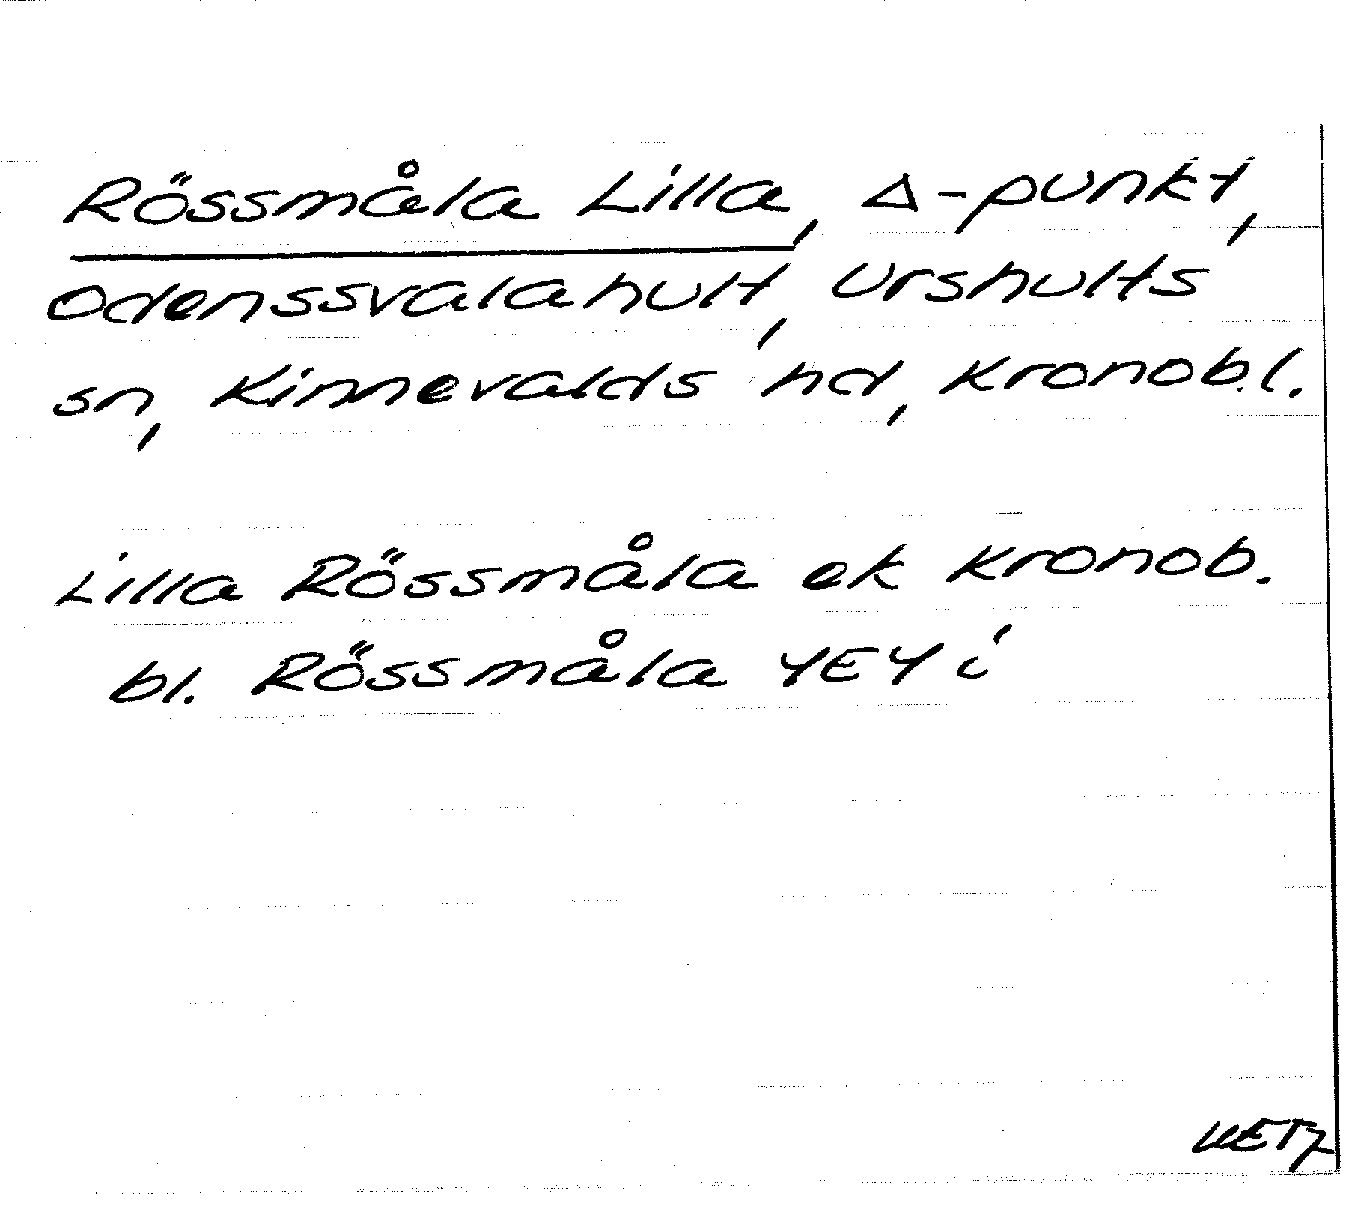 Rössmåla Lilla, Δ-punkt,
Odenssvalahult, Urshults
sn, Kinnevalds hd, Kronob.l.
Lilla Rössmåla ek Kronob.
bl. Rössmåla 4E4i